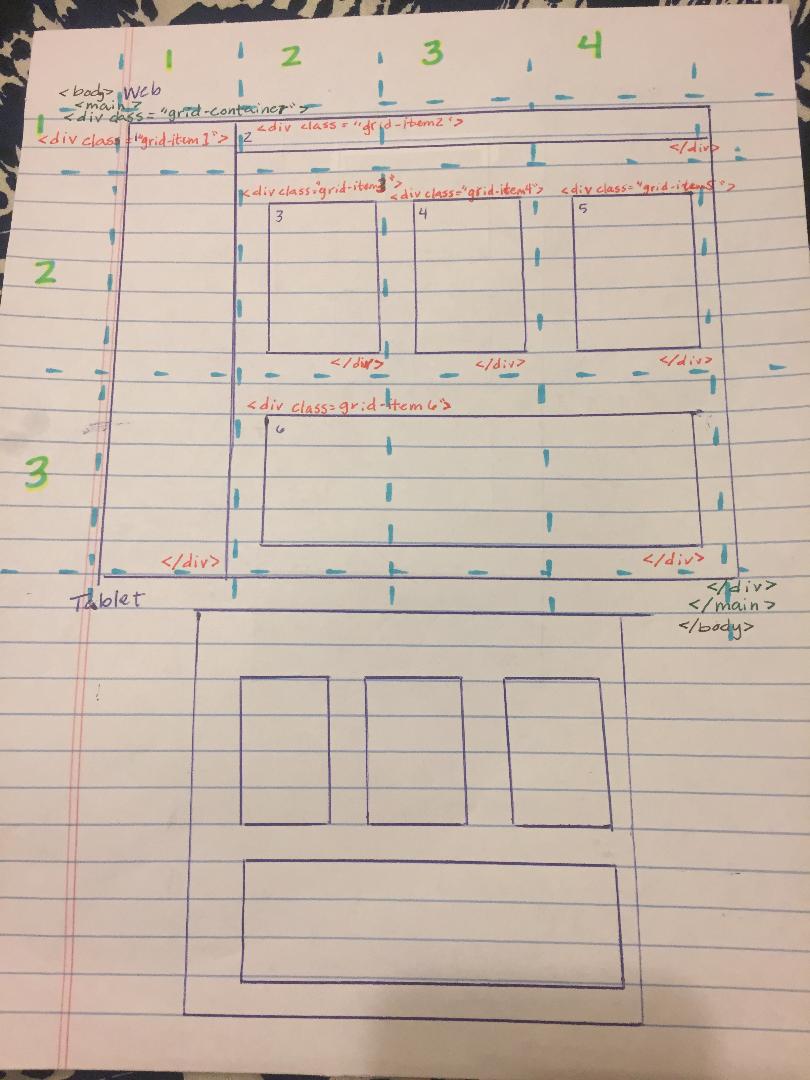 1 2 3 4
<body> Web
<main>
<div class="grid-container">
1
<div class="grid-item1">
2
<div class="grid-item2">
</div>
2
<div class="grid-item3">
<div class="grid-item4">
<div class="grid-item5">
3
4
5
</div>
</div>
</div>
3
<div class=grid-item6">
6
</div>
</div>
</div>
</main>
</body>
Tablet